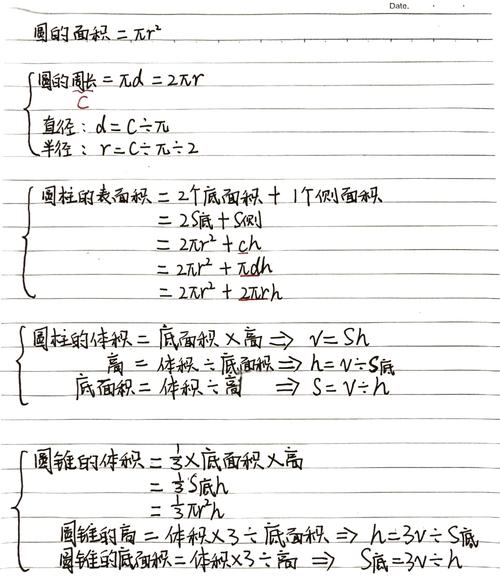 Date.
圆的面积=πr²
圆的周长=πd=2πr
C
直径：d=C÷π
半径：r=C÷π÷2
圆柱的表面积=2个底面积+1个侧面积
=2S底+S侧
=2πr²+ch
=2πr²+πdh
=2πr²+2πrh
圆柱的体积=底面积×高⇒V=Sh
高=体积÷底面积⇒h=V÷S底
底面积=体积÷高⇒S=V÷h
圆锥的体积=1/3×底面积×高
=1/3S底h
=1/3πr²h
圆锥的高=体积×3÷底面积⇒h=3V÷S底
圆锥的底面积=体积×3÷高⇒S底=3V÷h